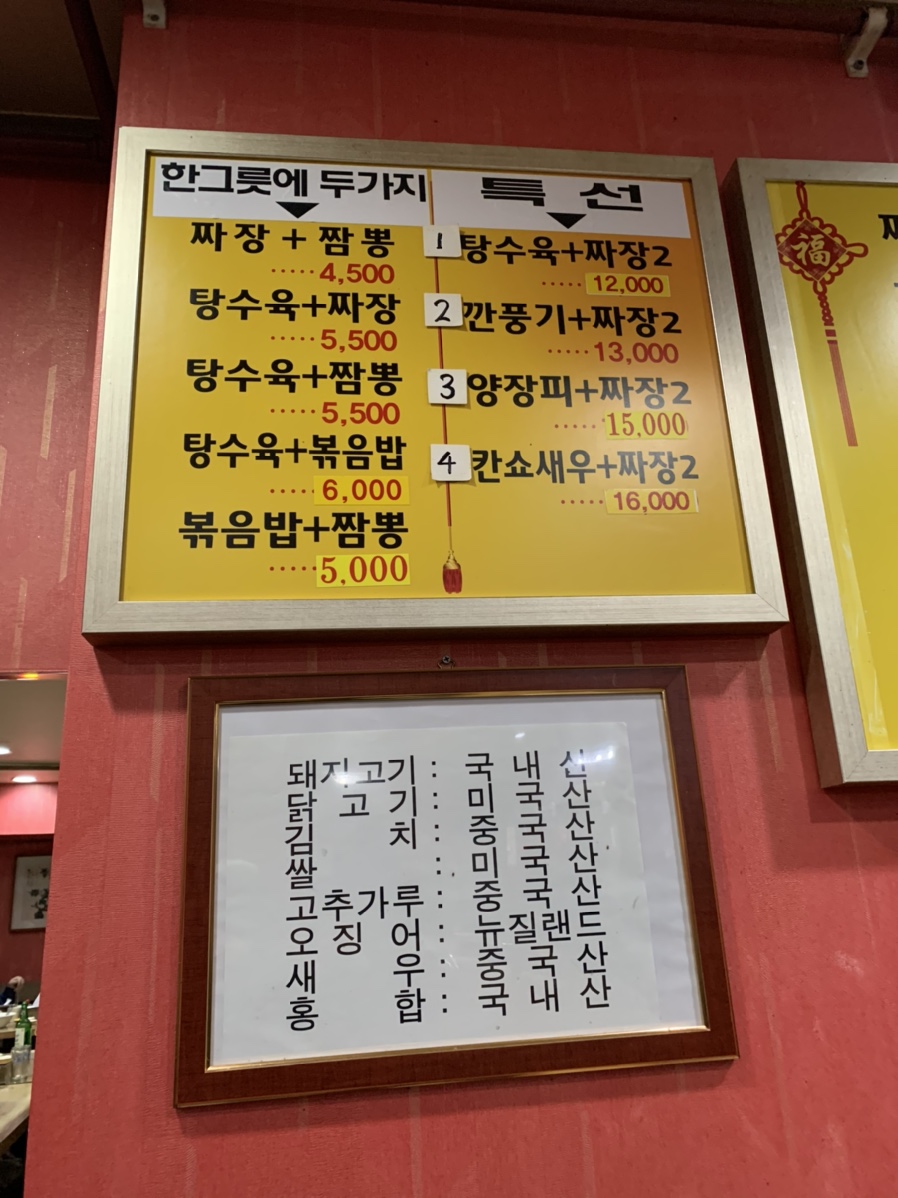 한그릇에 두가지
짜장 + 짬뽕
·····4,500
탕수육+짜장
·····5,500
탕수육+짬뽕
·····5,500
탕수육+볶음밥
·····6,000
볶음밥+짬뽕
·····5,000
특 선
1 탕수육+짜장2
·····12,000
2 깐풍기+짜장2
·····13,000
3 양장피+짜장2
·····15,000
4 칸쇼새우+짜장2
·····16,000
福
돼지고기 : 국 내 산
닭 고 기 : 미 국 산
김 치 : 중 국 산
쌀 : 미 국 산
고추가루 : 중 국 산
오 징 어 : 뉴질랜드
새 우 : 중 국 산
홍 합 : 국 내 산